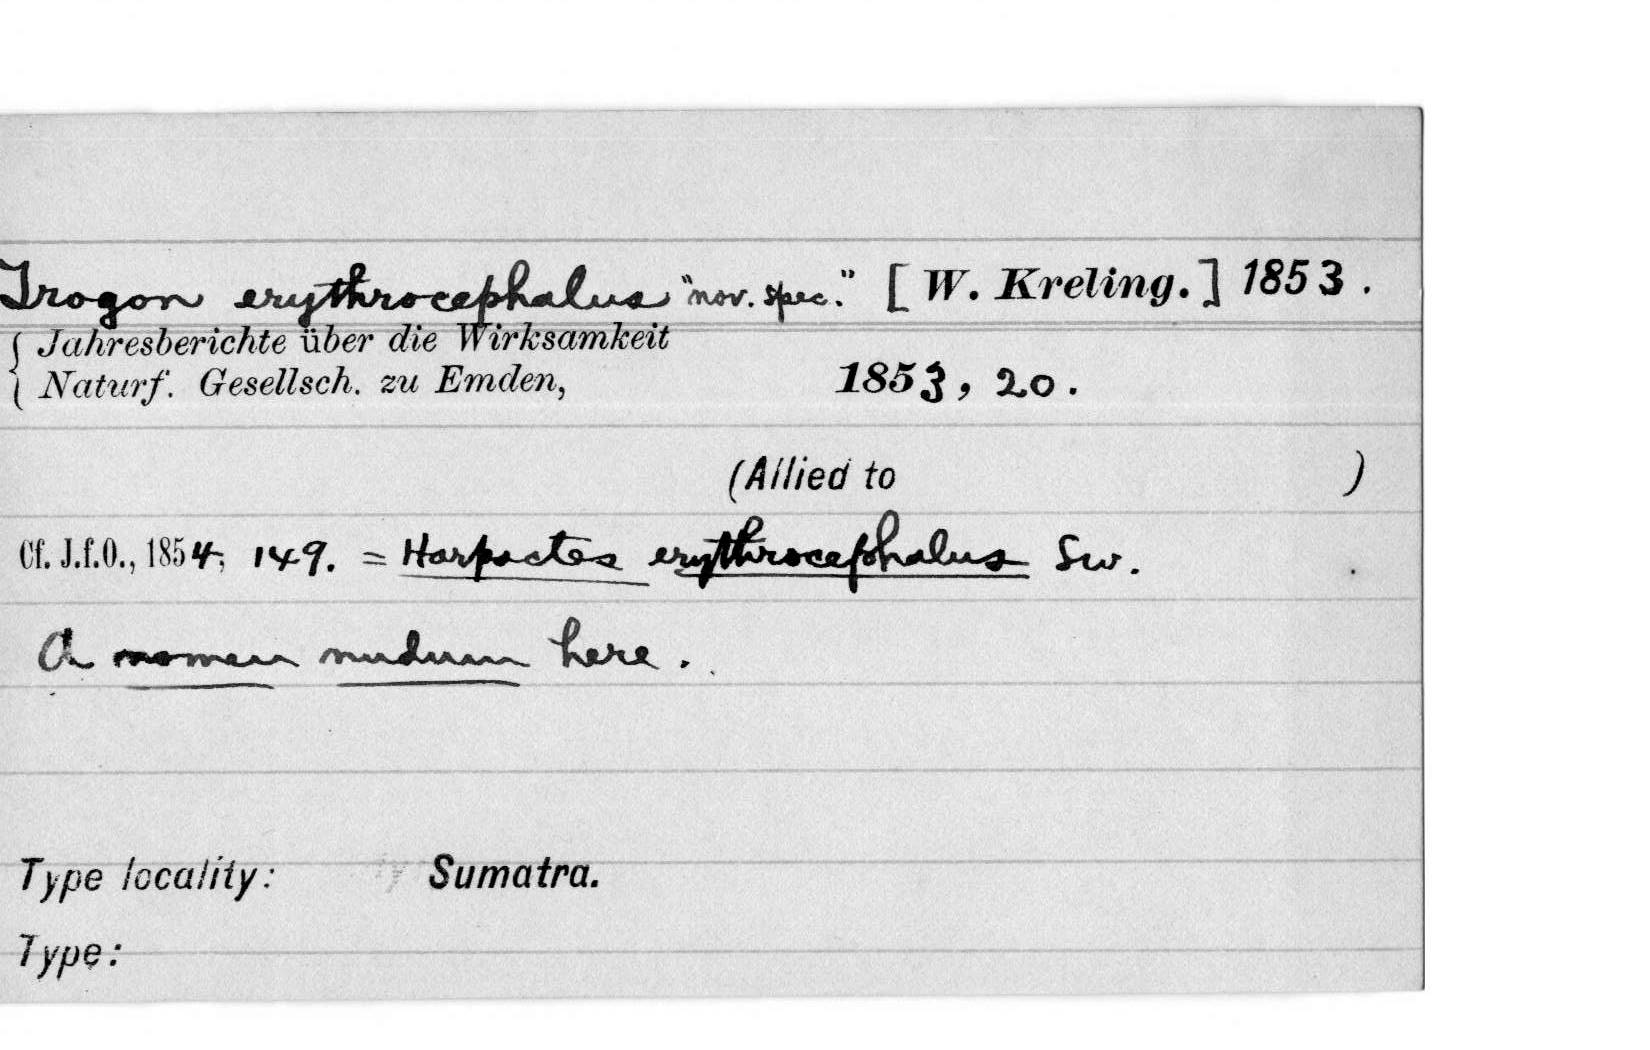 Trogon erythrocephalus "nov. spec." [W. Kreling.] 1853.
Jahresberichte über die Wirksamkeit
Naturf. Gesellsch. zu Emden, 1853, 20.
(Allied to )
Cf. J.f.O., 1854, 149. = Harpactes erythrocephalus Sw.
A nomen nudum here.
Type locality: Sumatra.
Type: